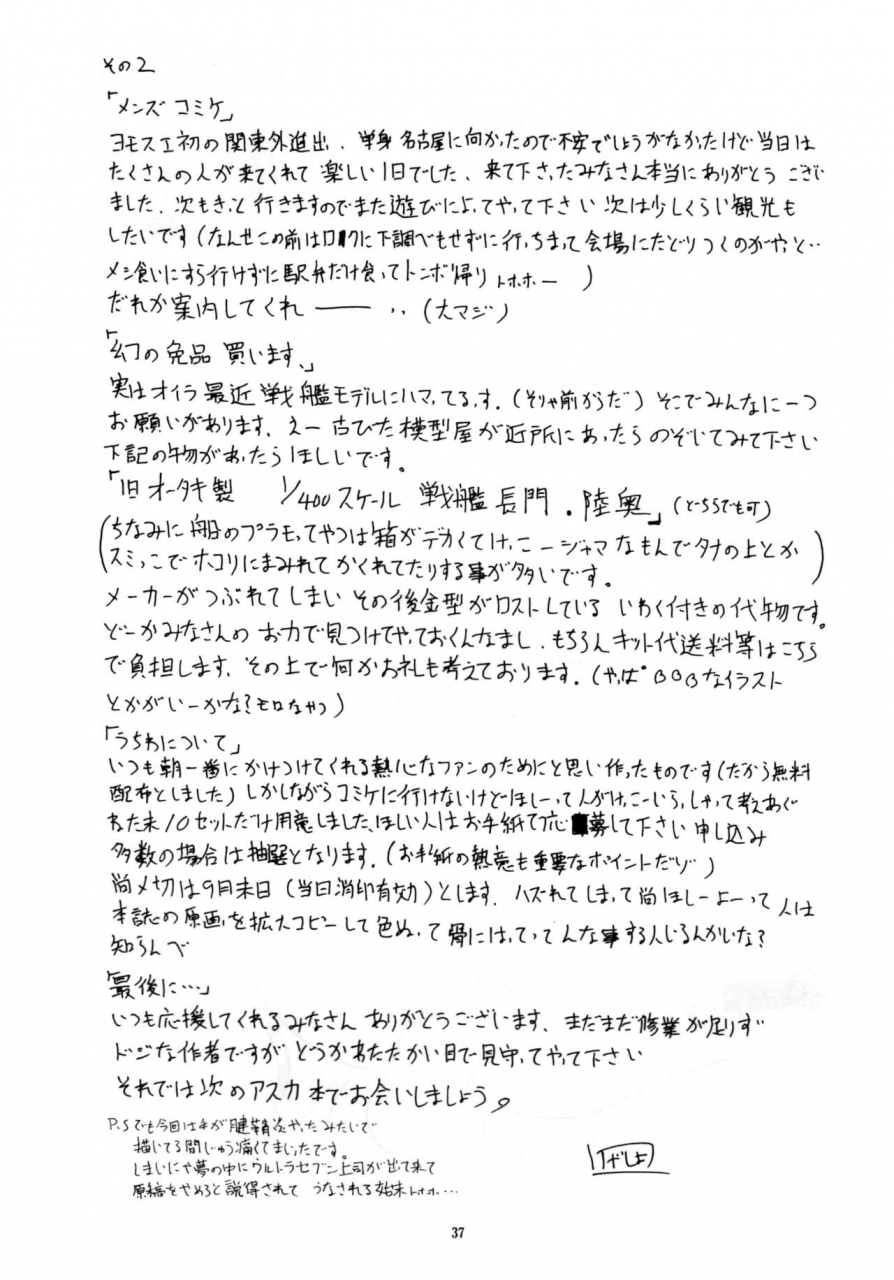 その2
「メンズ コミケ」
ヨモスエ初の関東外進出、単身名古屋に向かったので不安でしょうがなかったけど当日は
たくさんの人が来てくれて楽しい1日でした、来て下さったみなさん本当にありがとうござい
ました、次もきっと行きますのでまた遊びによってやって下さい 次は少しくらい観光も
したいです(なんせこの前はロクに下調べもせずに行っちまって会場にたどりつくのがやっと‥
メシ食いにすら行けずに駅弁だけ食ってトンボ帰り トホホー )
だれか案内してくれ ―― ‥ (大マジ)
「幻の 品 買います、」
実はオイラ最近戦艦モデルにハマってるっす。(そりゃ前からだ) そこでみんなに一つ
お願いがあります、えー古びた模型屋が近所にあったらのぞいてみて下さい
下記の物があったらほしいです。
「旧オータキ製 1/400スケール 戦艦長門.陸奥」(どちらでも可)
(ちなみに船のプラモってやつは箱がデカくてけっこージャマなもんでタナの上とか
スミっこでホコリにまみれてかくれてたりする事が多いです。 )
メーカーがつぶれてしまい その後金型がロストしている いわく付きの代物です。
どーかみなさんのお力で見つけてやっておくんなまし、もちろんキット代送料等はこちら
で負担します、その上で何かお礼も考えております。(やっぱ なイラスト
とかがいーかな?モロなやつ)
「うちわについて」
いつも朝一番にかけつけてくれる熱心なファンのためにと思い作ったものです(だから無料
配布としました)しかしながらコミケに行けないけどほしーって人がけっこーいらっしゃって考えあぐ
ねた末10セットだけ用意しました、ほしい人はお手紙で応募して下さい 申し込み
多数の場合は抽選となります。(お手紙の熱意も重要なポイントだゾ)
尚〆切は9月末日(当日消印有効)とします、ハズれてしまって尚ほしーよーって人は
本誌の原画を拡大コピーして色ぬって骨にはってってんな事する人いるんかいな?
知らんべ
「最後に…」
いつも応援してくれるみなさん ありがとうございます、まだまだ修業が足りず
ドジな作者ですが どうかあたたかい目で見守ってやって下さい
それでは次のアスカ本でお会いしましょう。
P.Sでも今回は手が腱鞘炎やったみたいで
描いてる間じゅう痛くてまいったです。
しまいにゃ夢の中にウルトラセブン上司が出て来て
原稿をやめろと説得されて うなされる始末トホホ…
37